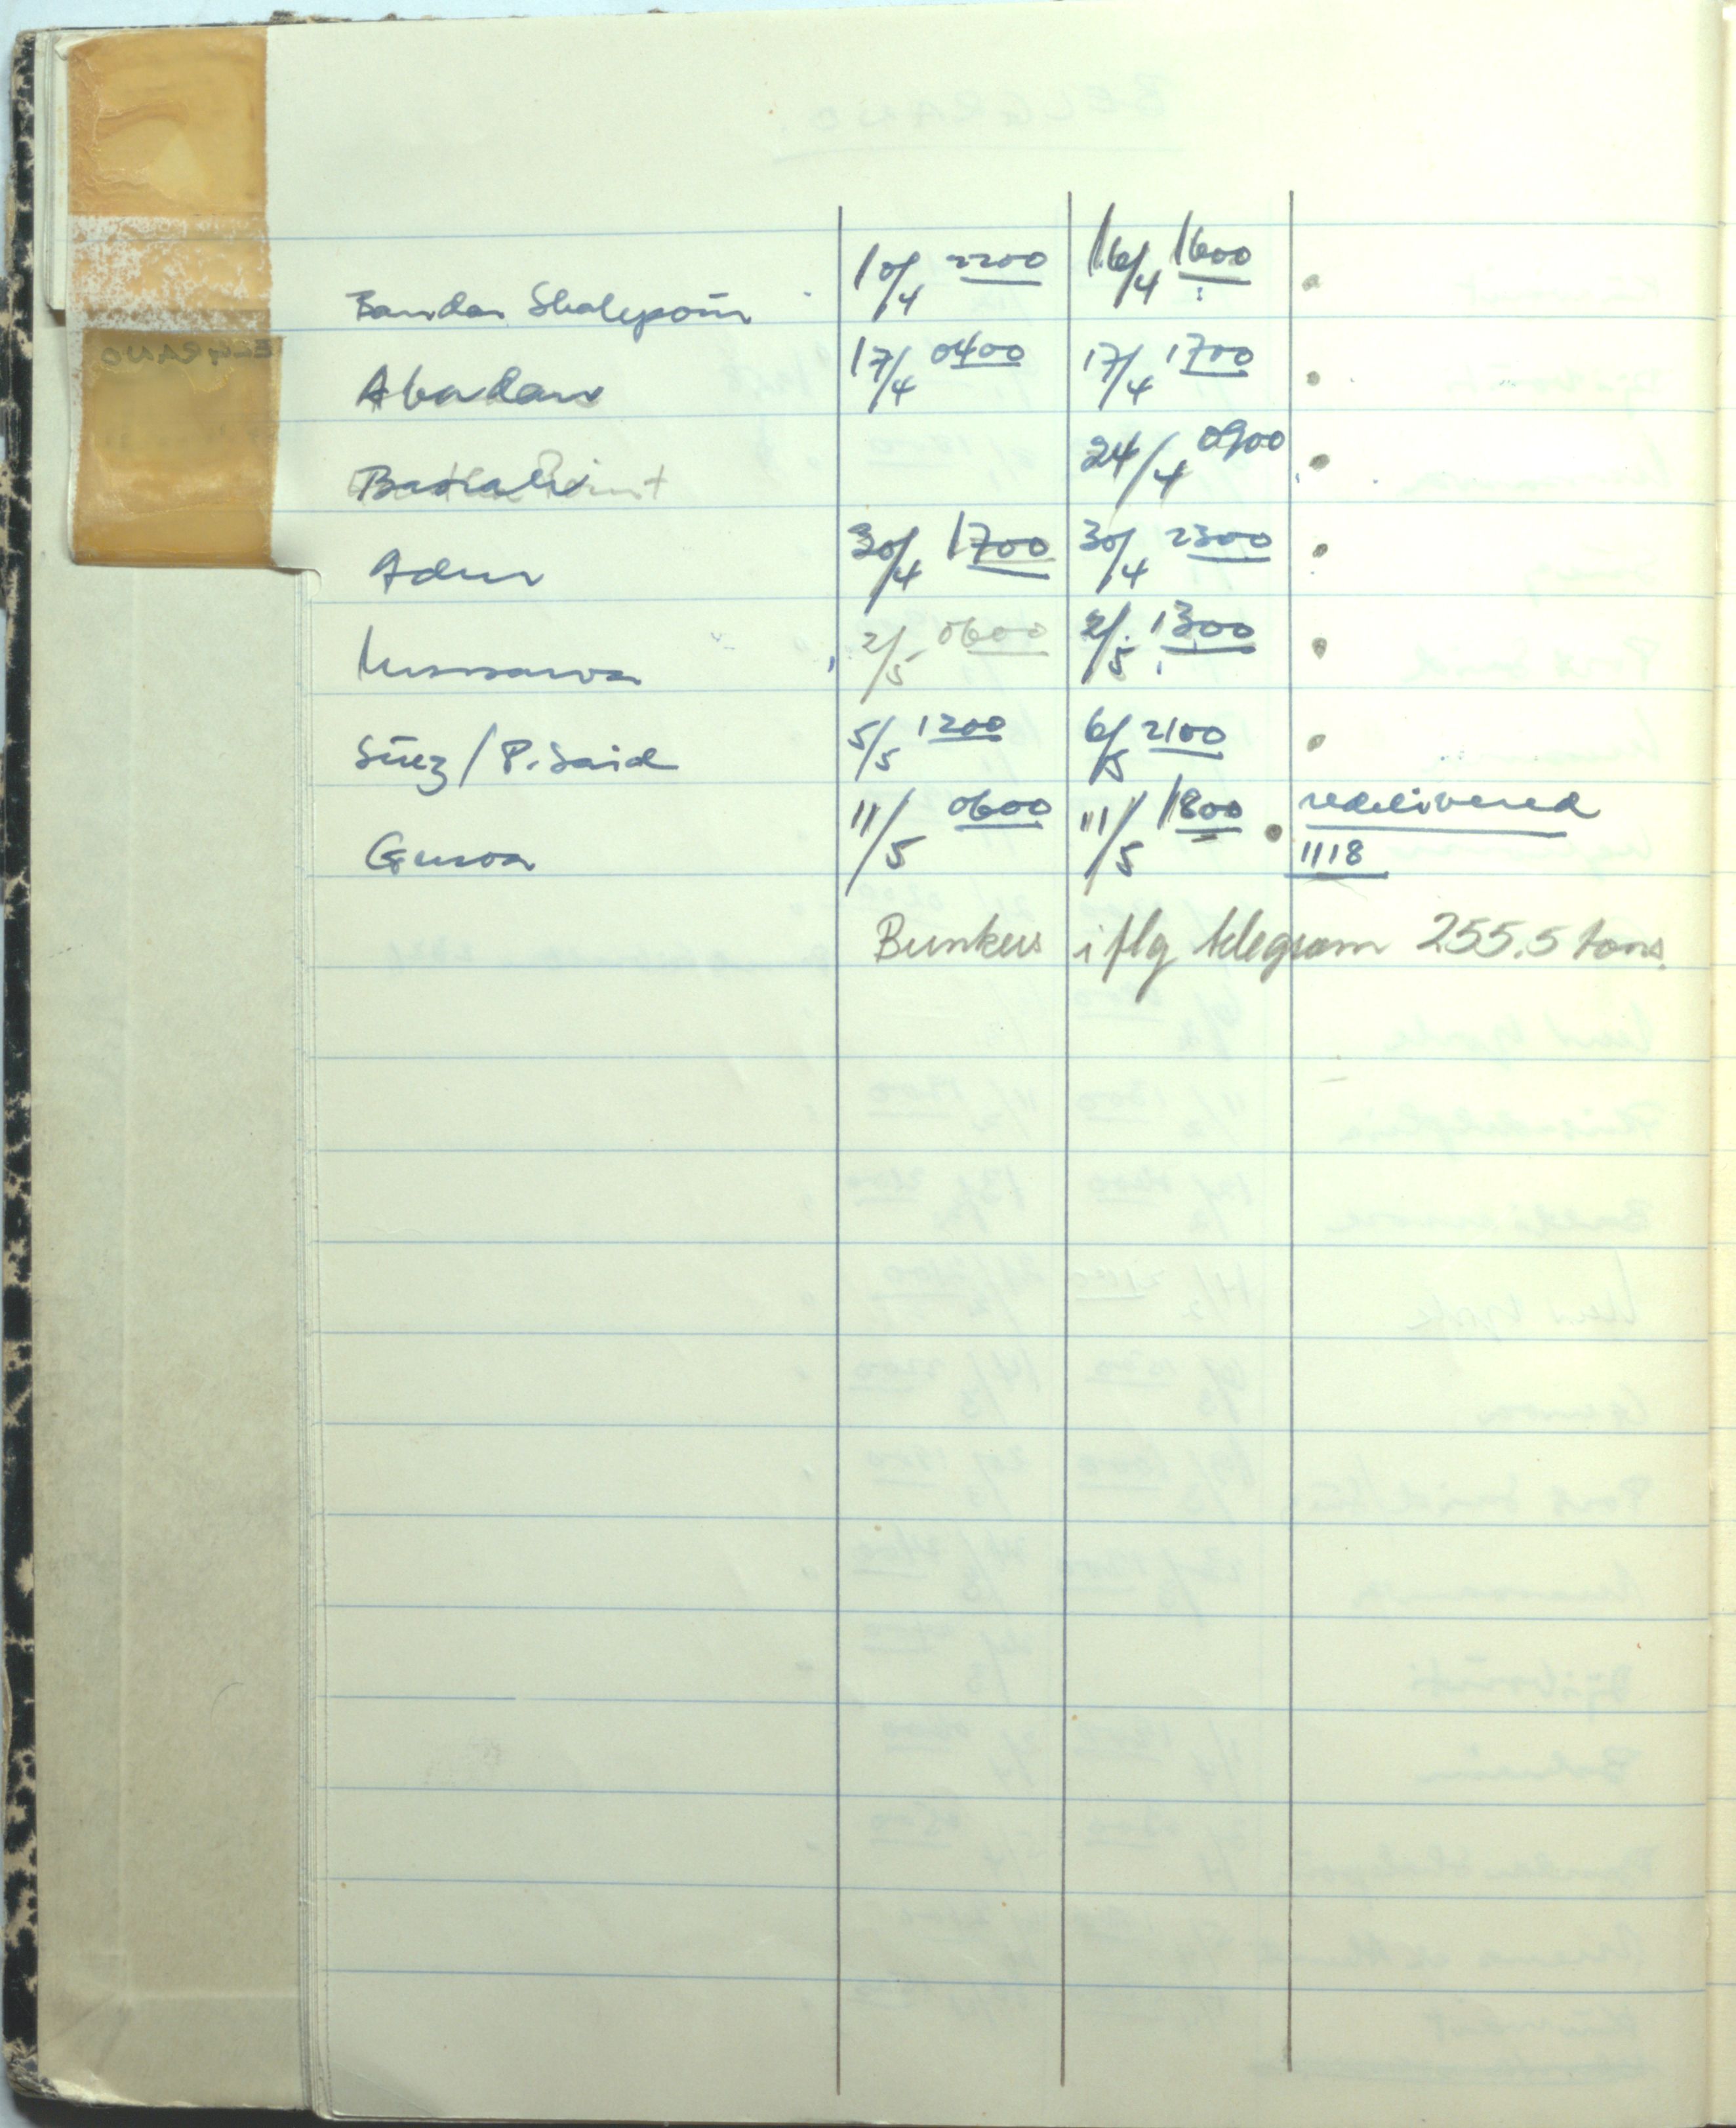 Bandar Shahpour 10/4 2200 16/4 1600
Abadan 17/4 0400 17/4 1700
24/4 0900
Aden 30/4 1700 30/4 2300
Massawa 2/5 0600 2/5 1300
Suez / P. Said 5/5 1200 6/5 2100
Genoa 11/5 0600 11/5 1800 redelivered
1118
Bunkers i flg telegram 255.5 tons.